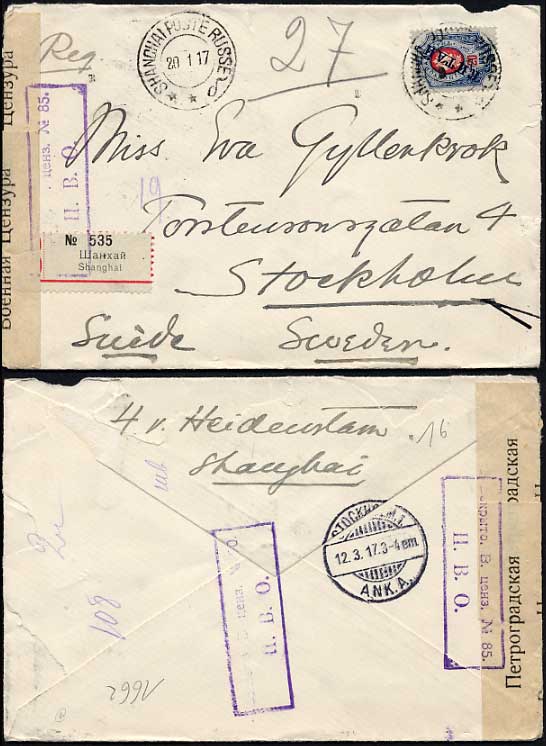 Reg
SHANGHAI POSTE RUSSE
20 1 17
27
Miss Eva Gyllenkrok
Torstensonsgatan 4
Stockholm
Suède Sweden.
19
ценз. № 85.
П. В. О.
№ 535
Шанхай
Shanghai
Военная Цензура Цензура
4 v. Heidenstam
Shanghai
16
STOCKHOLM 1.
12. 3. 17. 3-4 em.
ANK. A.
В. ценз. №
П. В. О.
В. ценз. № 85.
П. В. О.
Петроградская
108
1662